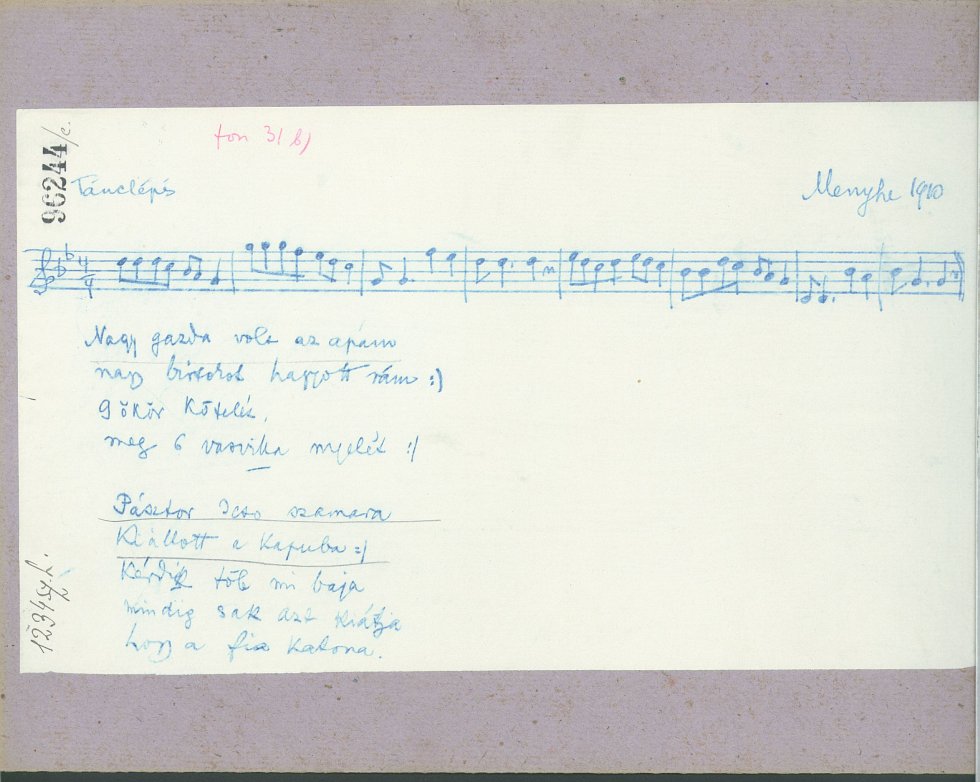 ton 31 b)
96244/c.
Tánclépés
Menyhe 1910
4/4
Nagy gazda volt az apám
nagy birtokot hagyott rám :)
9 ökör kötelét,
meg 6 vasvilla nyelét :/
Pásztor szamara
Kiállott a kapuba :/
Kérdik tőle mi baja
mindig sak azt kiátja
hogy a fia katona.